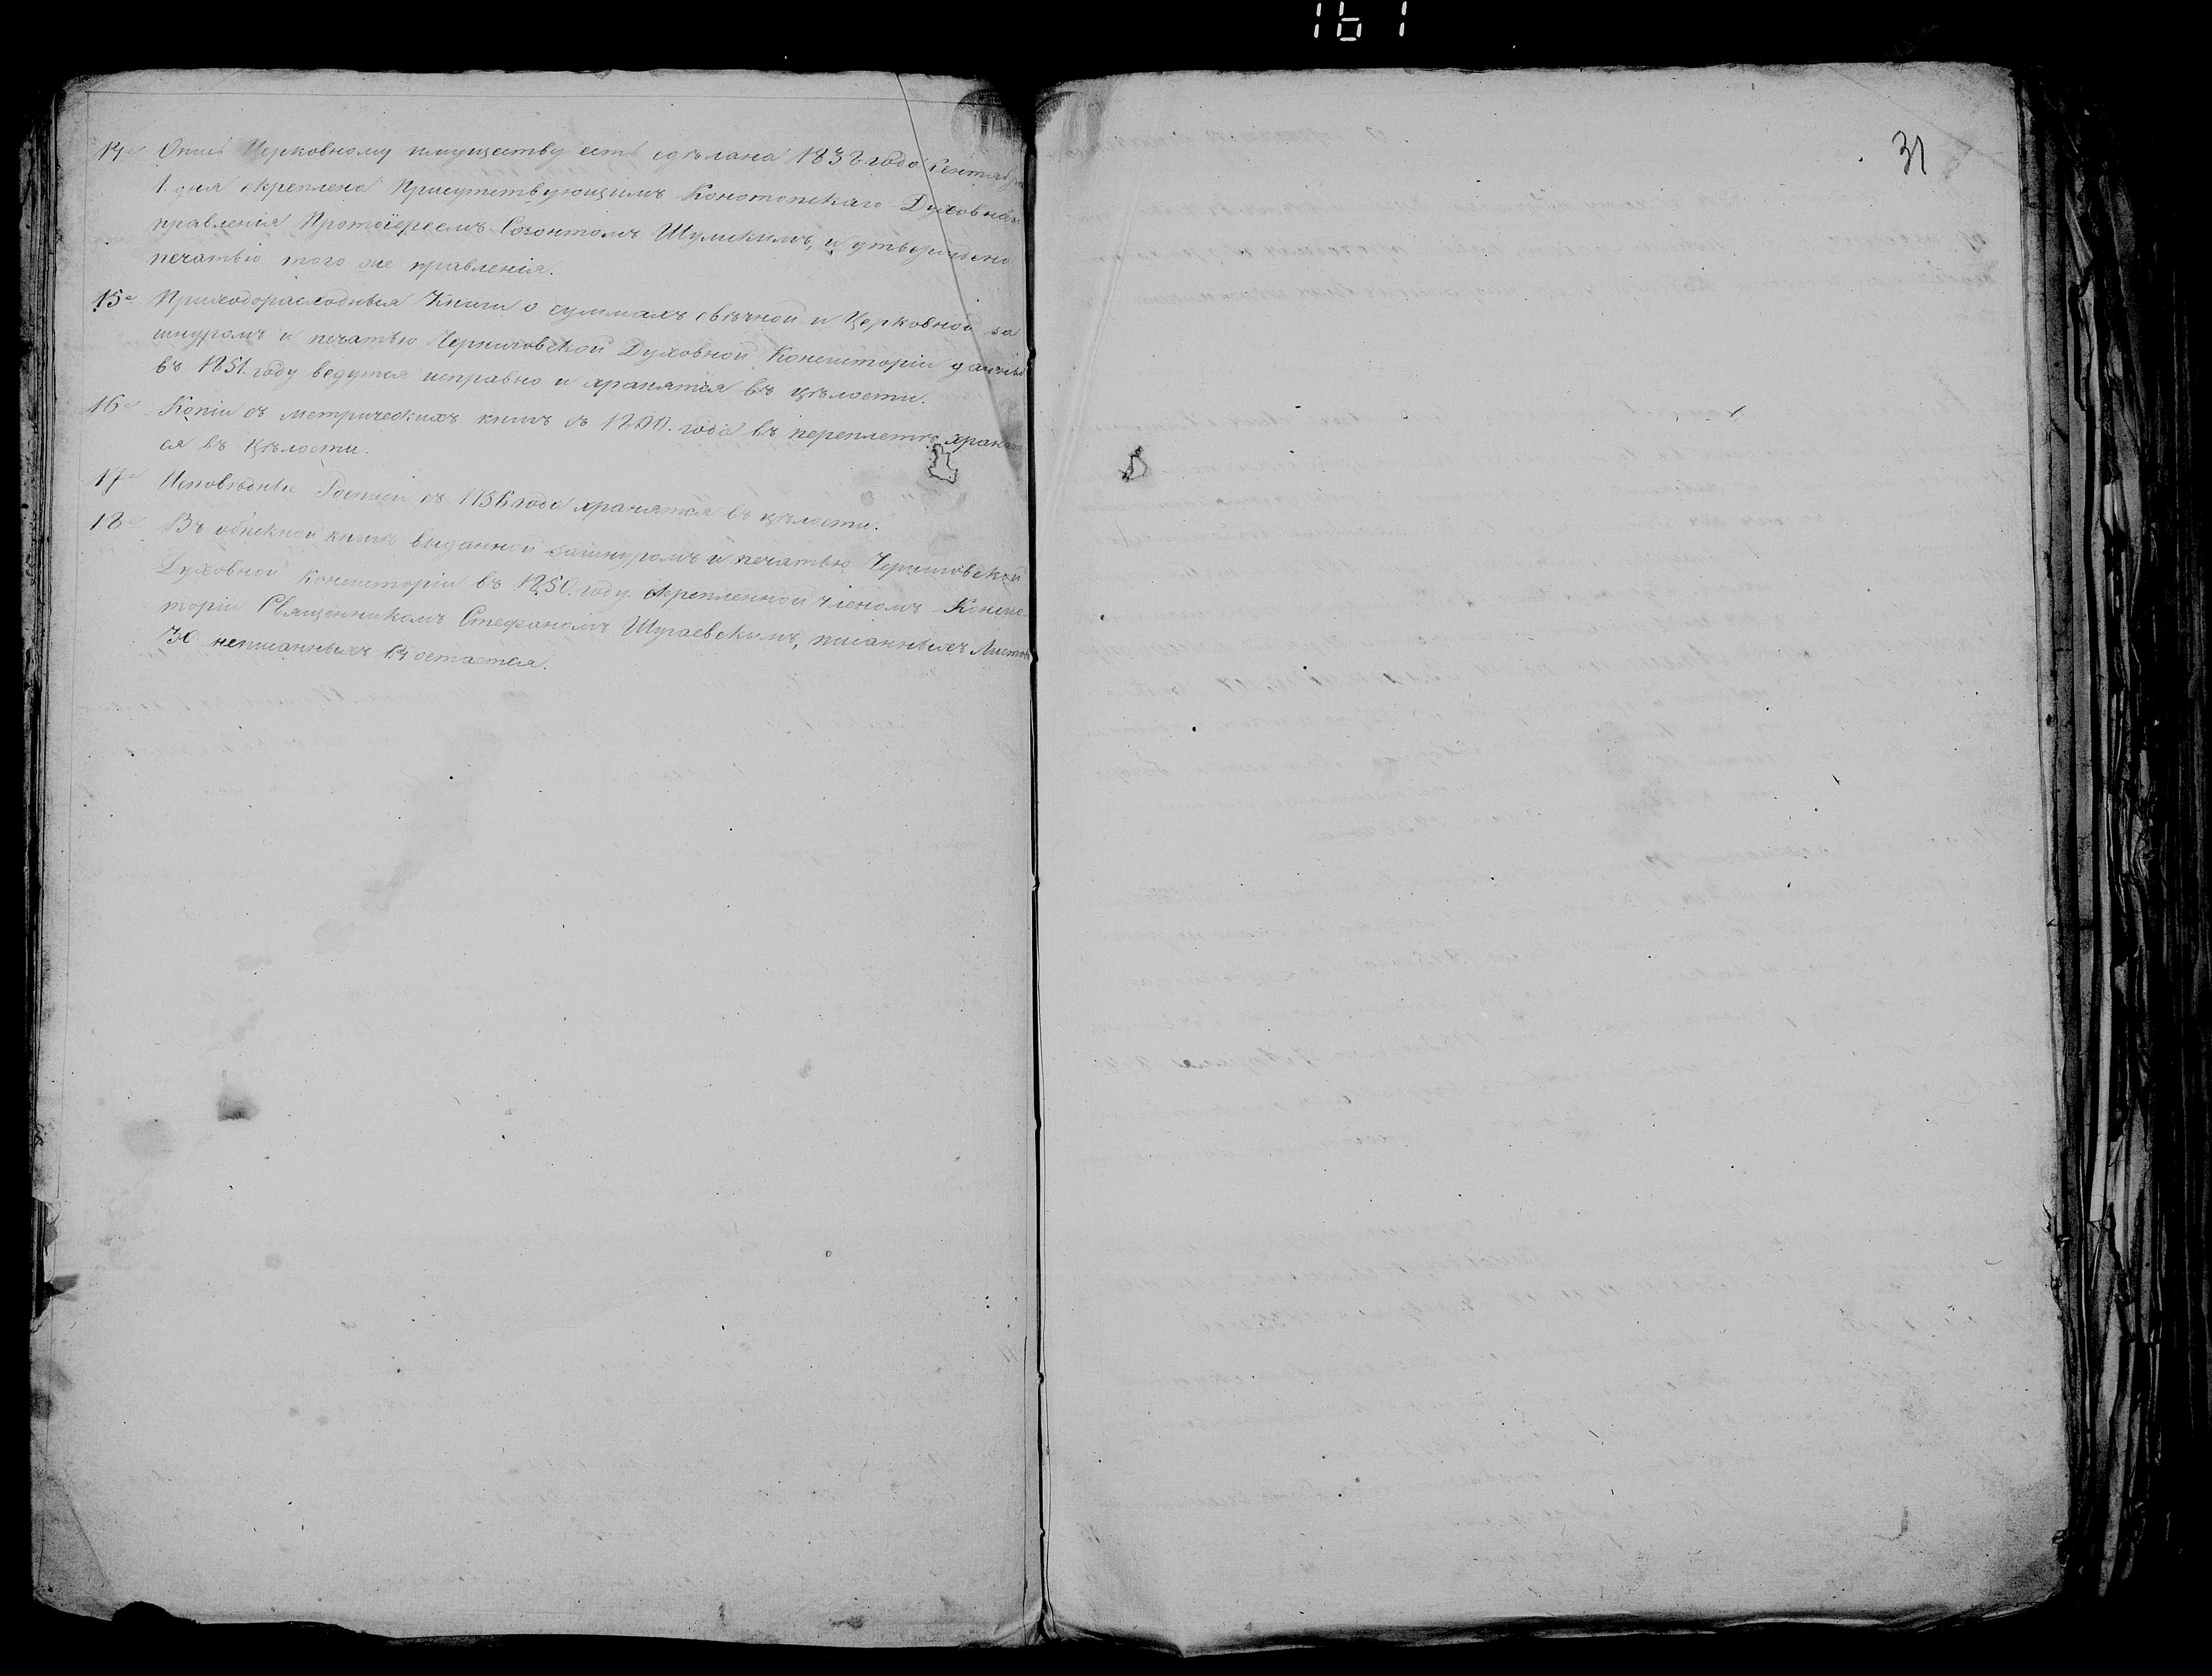 161
31
14е Опись Церковному имуществу есть сдѣлана 1838 года Сентября
1. дня скреплена Присутствующимъ Конотопскаго Духовнаго
правленія Протоіереемъ Созонтомъ Шумскимъ, и утверждена
печатью того же правленія.
15е Приходорасходныя Книги о суммахъ свѣчной и Церковной за
шнуромъ и печатью Черниговской Духовной Консисторіи данныя
въ 1851. году ведутся исправно и хранятся въ цѣлости.
16е Копіи съ метрическихъ книгъ съ 1800. года въ переплетѣ хранят
ся въ цѣлости.
17е Исповѣдныя Росписи съ 1736 года хранятся въ цѣлости.
18е Въ обыскной книгѣ выданной зашнуромъ и печатью Черниговской
Духовной Консисторіи въ 1850. году. скрепленной членомъ Консис
торіи Священникомъ Стефаномъ Шугаевскимъ, писанныхъ Листовъ
неписанныхъ остается.